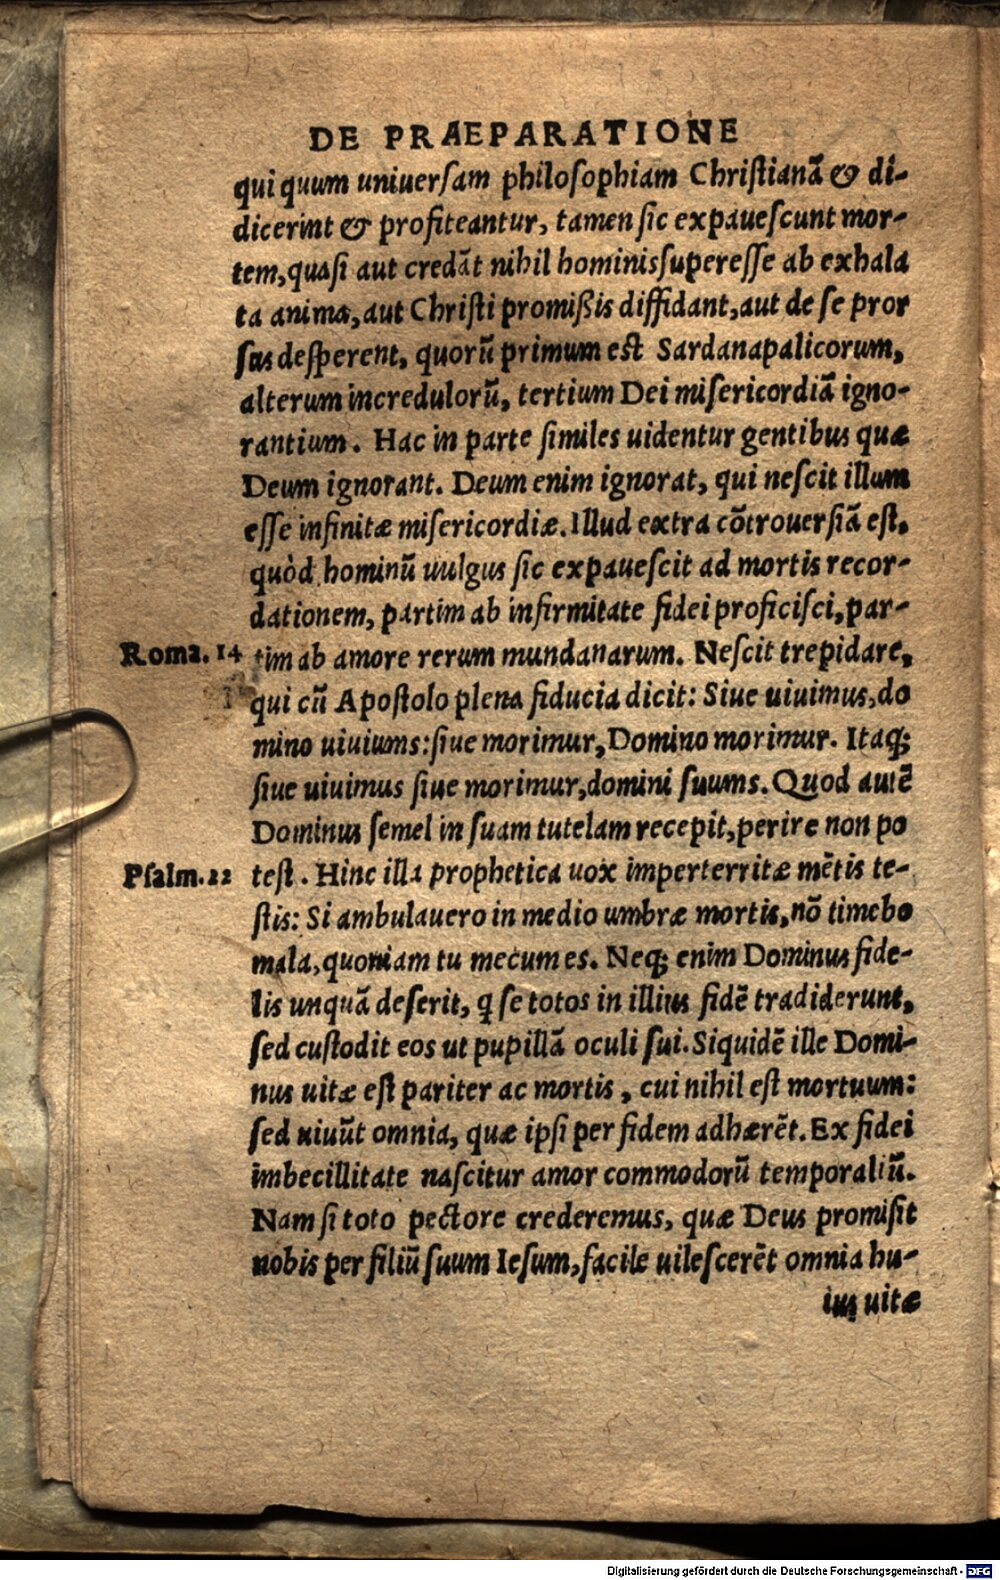 DE PRAEPARATIONE
qui quum uniuersam philosophiam Christianā & di-
dicerint & profiteantur, tamen sic expauescunt mor-
tem, quasi aut credāt nihil hominis superesse ab exhala
ta anima, aut Christi promißis diffidant, aut de se pror
sus desperent, quorū primum est Sardanapalicorum,
alterum incredulorū, tertium Dei misericordiā igno-
rantium. Hac in parte similes uidentur gentibus quæ
Deum ignorant. Deum enim ignorat, qui nescit illum
esse infinitæ misericordiæ. Illud extra cōtrouersiā est,
quòd hominū uulgus sic expauescit ad mortis recor-
dationem, partim ab infirmitate fidei proficisci, par-
Roma. 14 tim ab amore rerum mundanarum. Nescit trepidare,
qui cū Apostolo plena fiducia dicit: Siue uiuimus, do
mino uiuiums: siue morimur, Domino morimur. Itaq;
siue uiuimus siue morimur, domini suums. Quod autē
Dominus semel in suam tutelam recepit, perire non po
Psalm. 22 test. Hinc illa prophetica uox imperterritæ mētis te-
stis: Si ambulauero in medio umbræ mortis, nō timebo
mala, quoniam tu mecum es. Neq; enim Dominus fide-
lis unquā deserit, q̃ se totos in illius fidē tradiderunt,
sed custodit eos ut pupillā oculi sui. Siquidē ille Domi-
nus uitæ est pariter ac mortis, cui nihil est mortuum:
sed uiuūt omnia, quæ ipsi per fidem adhærēt. Ex fidei
imbecillitate nascitur amor commodorū temporaliū.
Nam si toto pectore crederemus, quæ Deus promisit
nobis per filiū suum Iesum, facile uilescerēt omnia hu-
ius uitæ
Digitalisierung gefördert durch die Deutsche Forschungsgemeinschaft - DFG